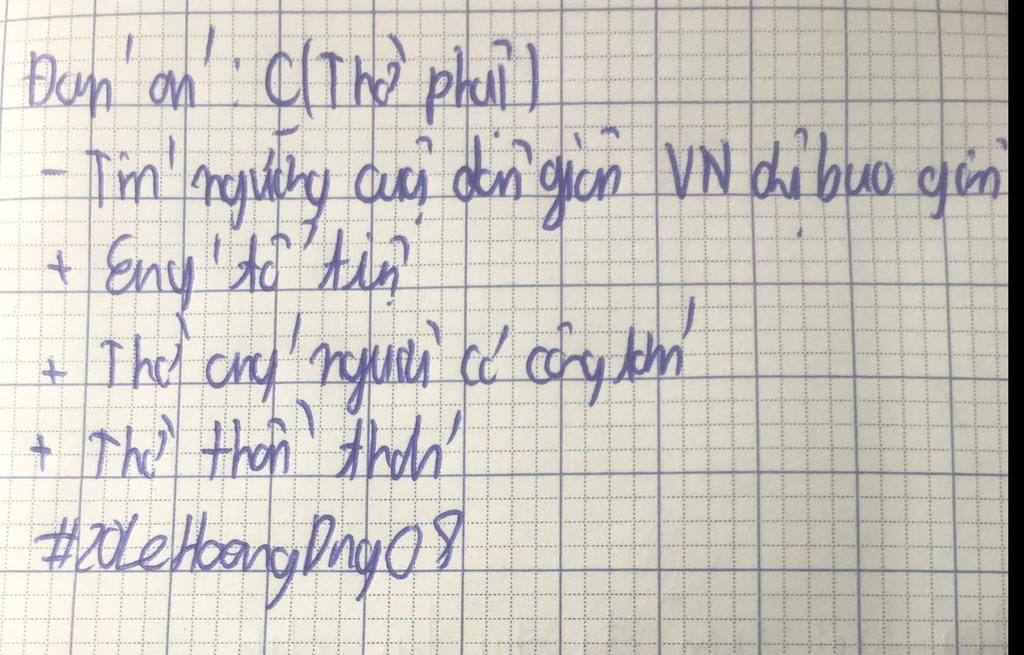 Đáp án: C (Thờ phật)
- Tín ngưỡng của dân gian VN chỉ bao gồm
+ tổ tiên
+ Thờ cúng người có công
+ Thờ thần thánh
#20LeHoangDng08